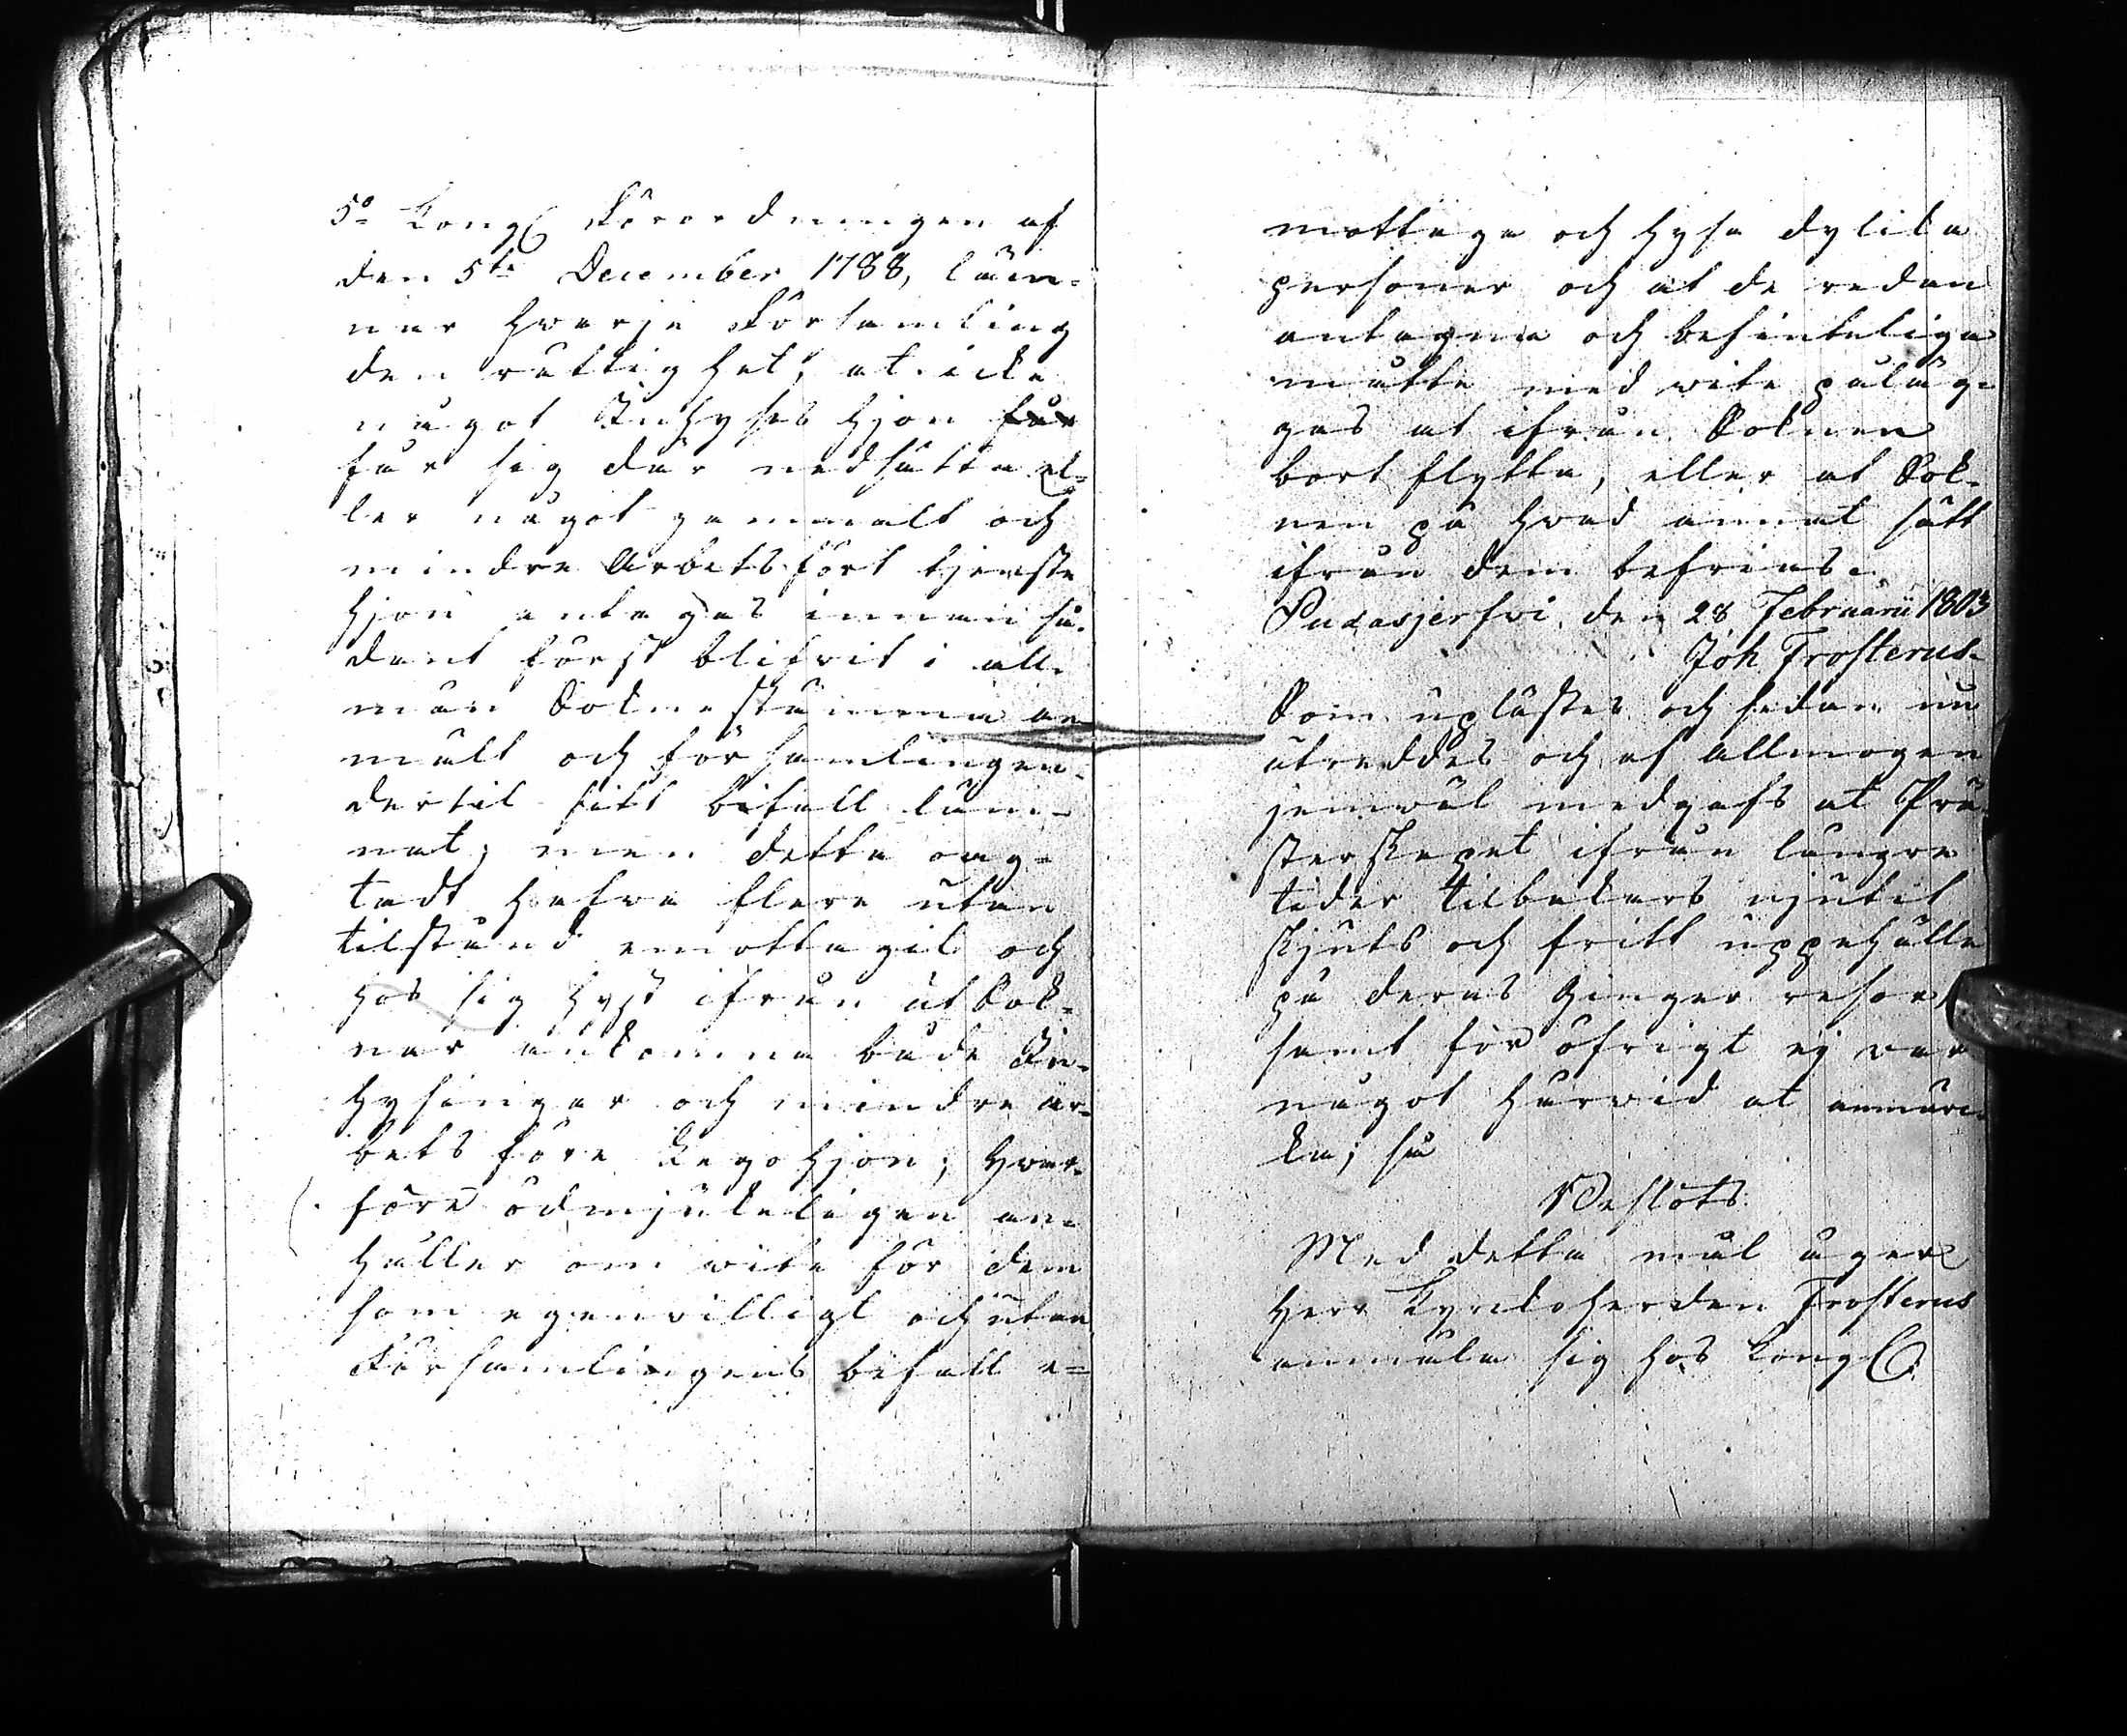 5o Kongl Förordningen af
den 5te December 1788, läm-
nar hvarje Församling
den rättighet, at icke
något Inhyses hjon får
får sig där nedsätta el-
ler något gammalt och
mindre Arbetsfört tjenste
hjon antagas innan så-
dant först blifvit i all-
män Sokne stämma an
mält och församlingen
dertil sitt bifall läm-
nat; men detta oag-
tadt hafva flere utan
tilstånd emottagit och
hos sig hyst ifrån ut Sok-
nar ankomna både In-
hysingar och mindre ar-
bets före Legohjon; hvar-
före ödmjukeligen an-
håller om wite för dem
som egenvilligt och utan
Församlingens bifall e-
mottaga och hysa dylika
personer och at de redan
antagna och befinteliga
måtte med wite påläg-
gas at ifrån Soknen
bort flytta, eller at Sok-
nen på hvad annat sätt
ifrån dem befrias.
Pudasjerfvi den 28 Februarii 1803
Joh Frosterus.
Som uplästes och sedan nu
utreddes och af Allmogen
jemväl medgafs at Prä
sterskapet ifrån längre
tider tilbakars njutit
skjuts och fritt uppehälle
på deras Ginger resor
samt för öfrigt ej var
något härvid at anmär-
ka; så
Beslöts
Med detta mål äger
Herr Kyrckoherden Frosterus
anmäla sig hos Kongl